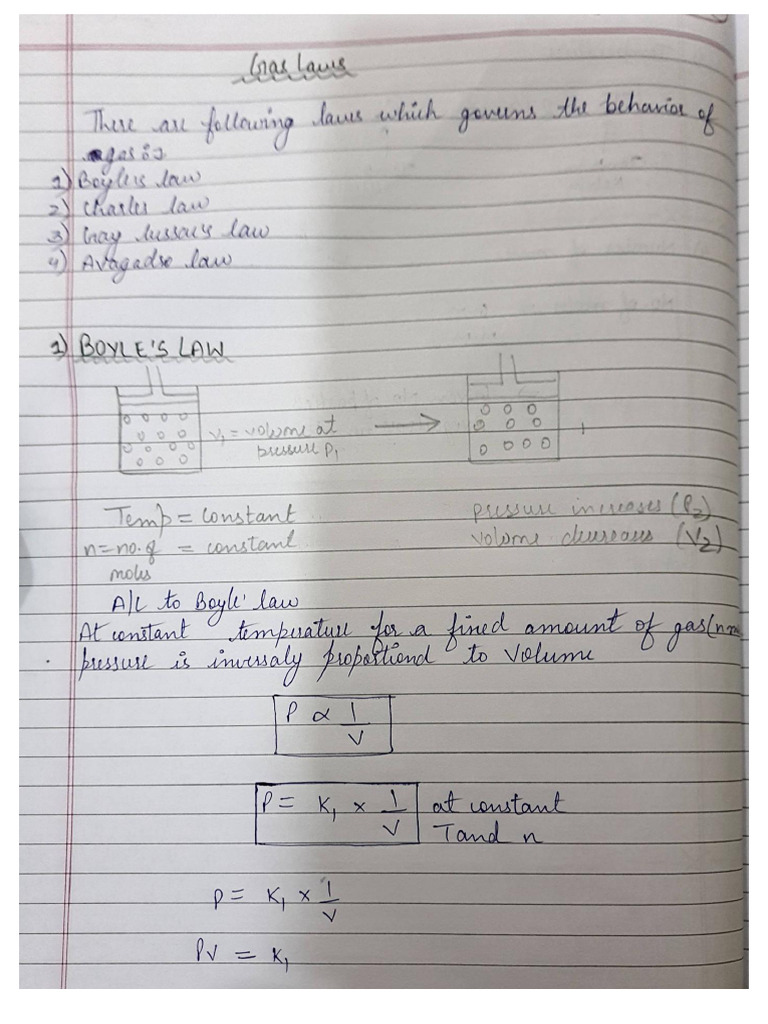 Gas Laws
There are following laws which governs the behavior of
gas :-
1) Boyle's law
2) Charles law
3) Gay lussac's law
4) Avagadro law
1) BOYLE'S LAW
V₁ = volume at
pressure P₁
Temp = constant
pressure increases (P₂)
n = no. of = constant
volume decreases (V₂)
moles
A/c to Boyle' law
At constant temperature for a fined amount of gas (n
pressure is inversaly proportiond to volume
P ∝ 1/V
P = K₁ × 1/V at constant
T and n
P = K₁ × 1/V
PV = K₁